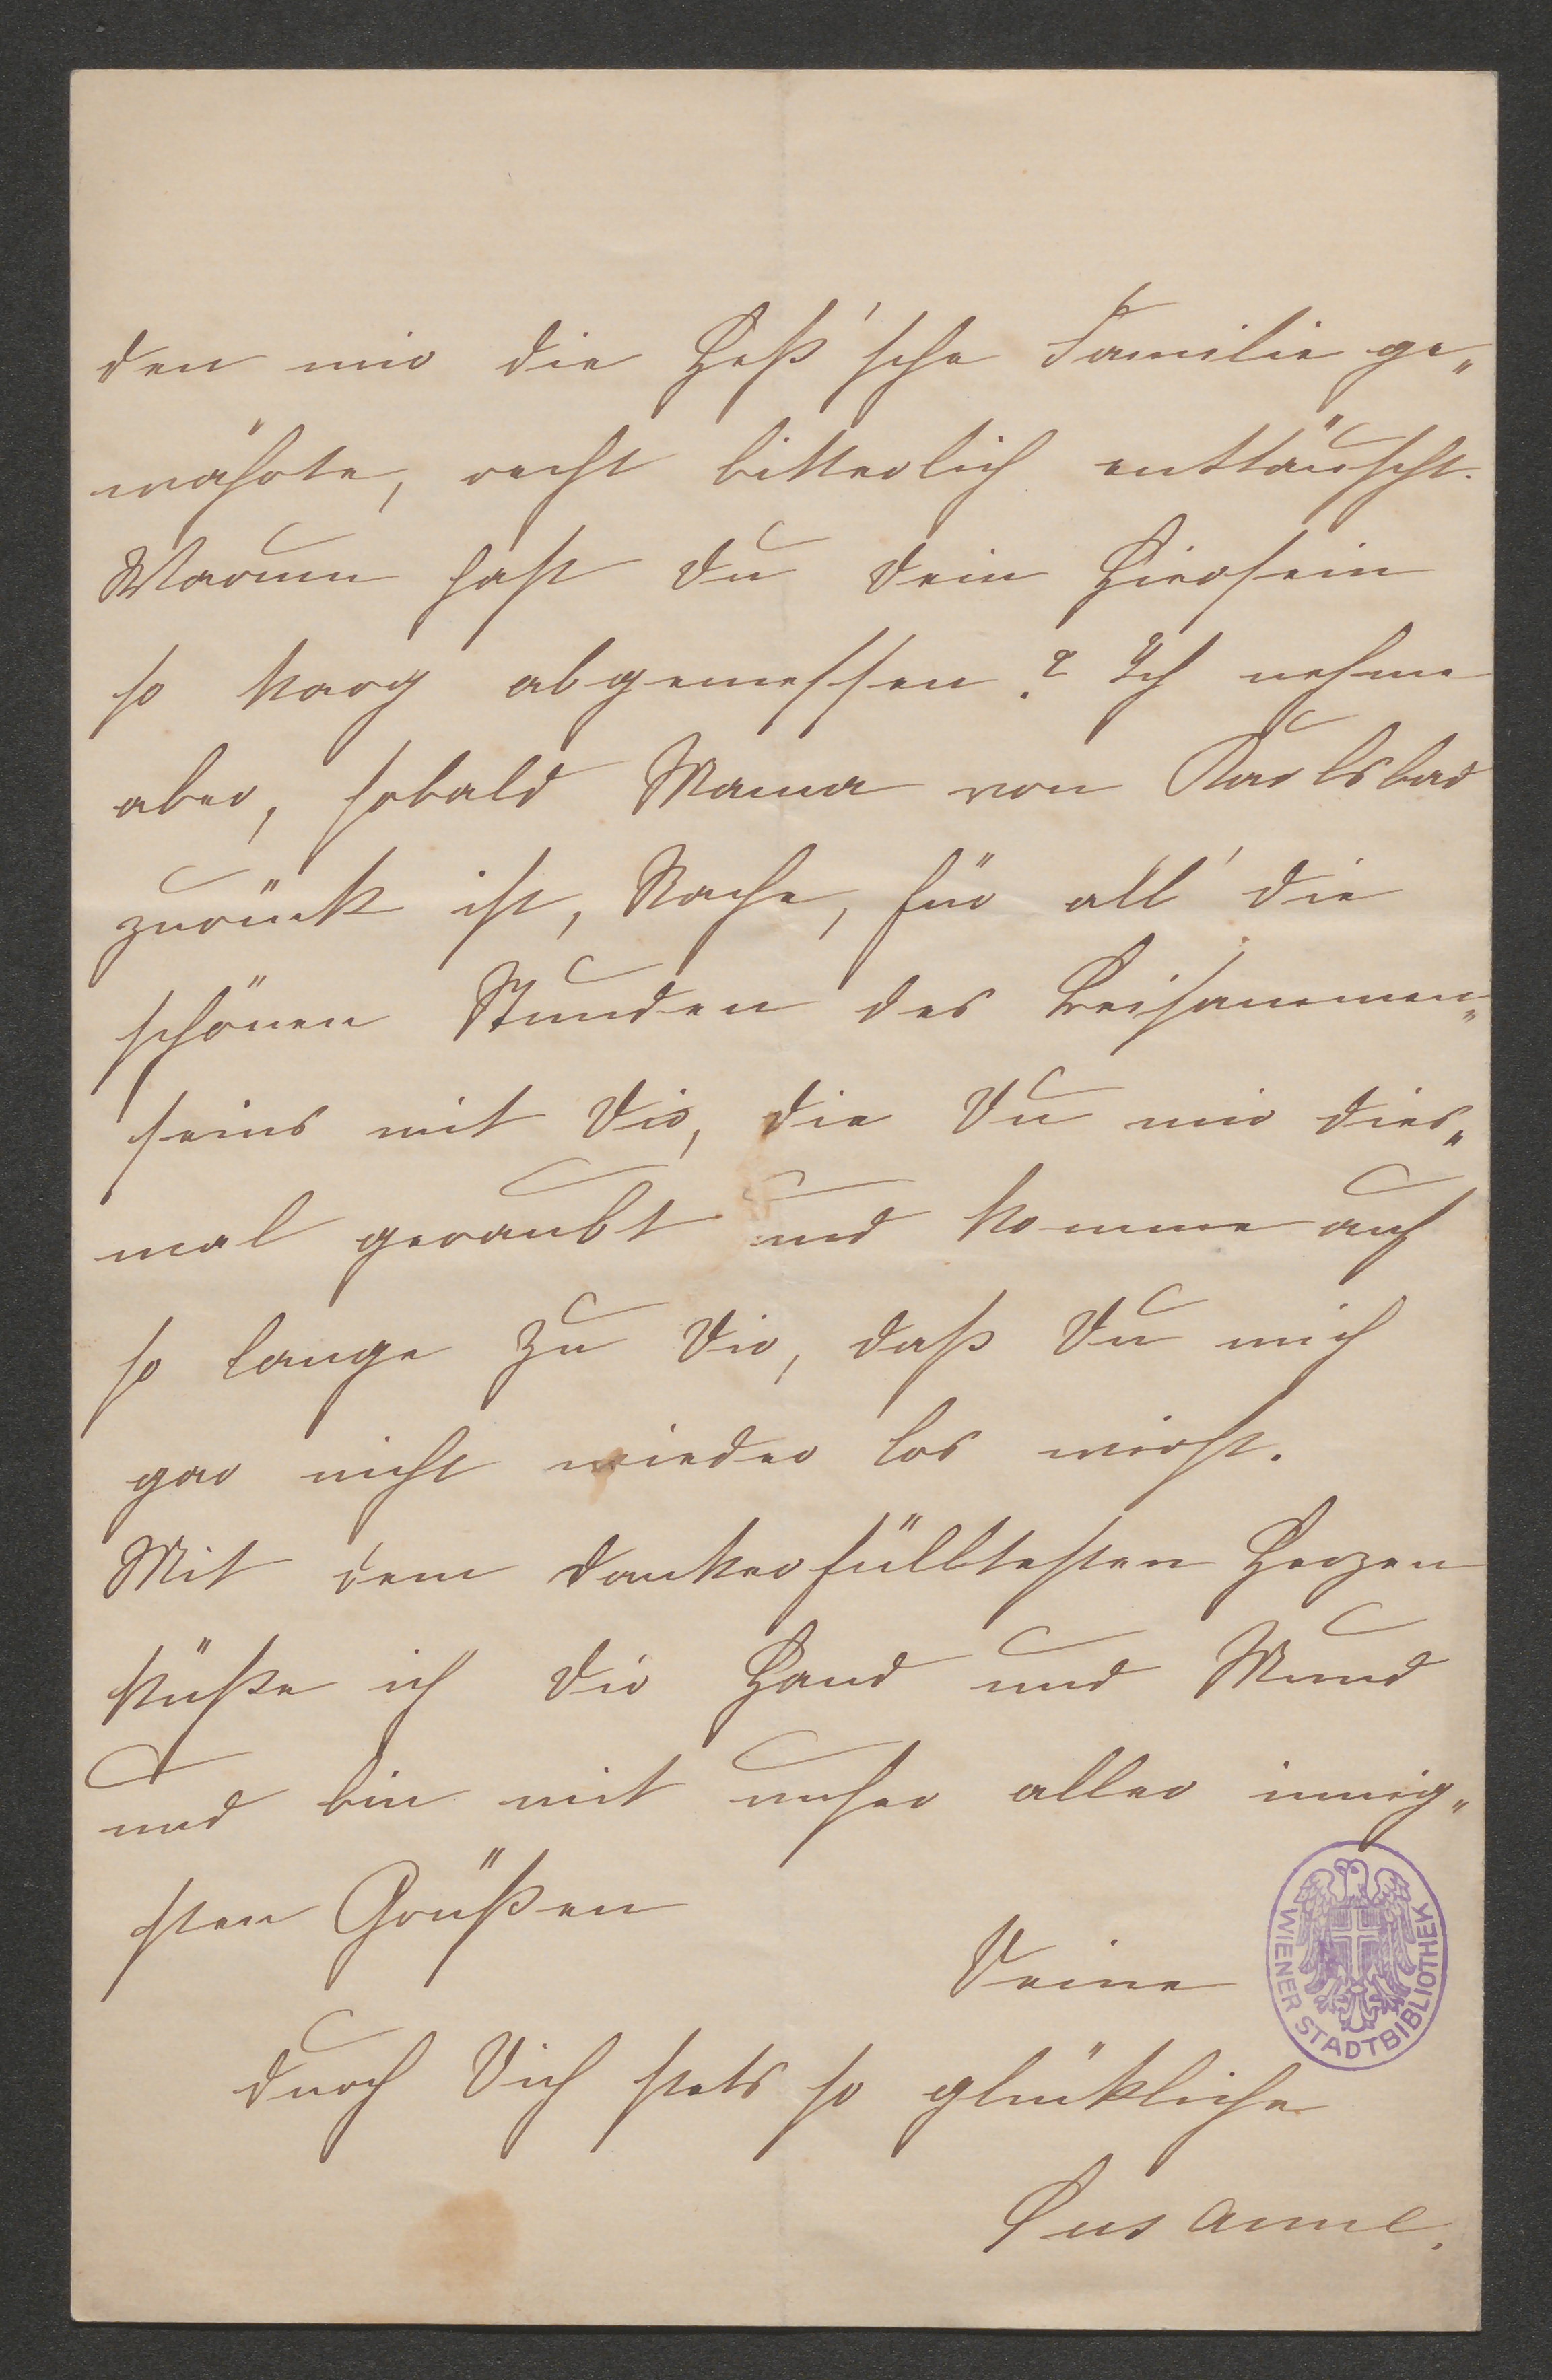 den mir die Heß'sche Familie ge„
währte, recht bitterlich enttäuscht.
Warum hast Du Dein Hiersein
so karg abgemessen? Ich nehme
aber, sobald Mama von Karlsbad
zurück ist, Rache, für all' die
schönen Stunden des Beisammen„
seins mit Dir, die Du mir dies„
mal geraubt und komme auf
so lange zu Dir, daß Du mich
gar nicht wieder los wirst.
Mit dem dankerfülltesten Herzen
küße ich Dir Hand und Mund
und bin mit unser aller innig„
sten Grüßen
Deine
durch Dich stets so glückliche
Susanne.
WIENER STADTBIBLIOTHEK